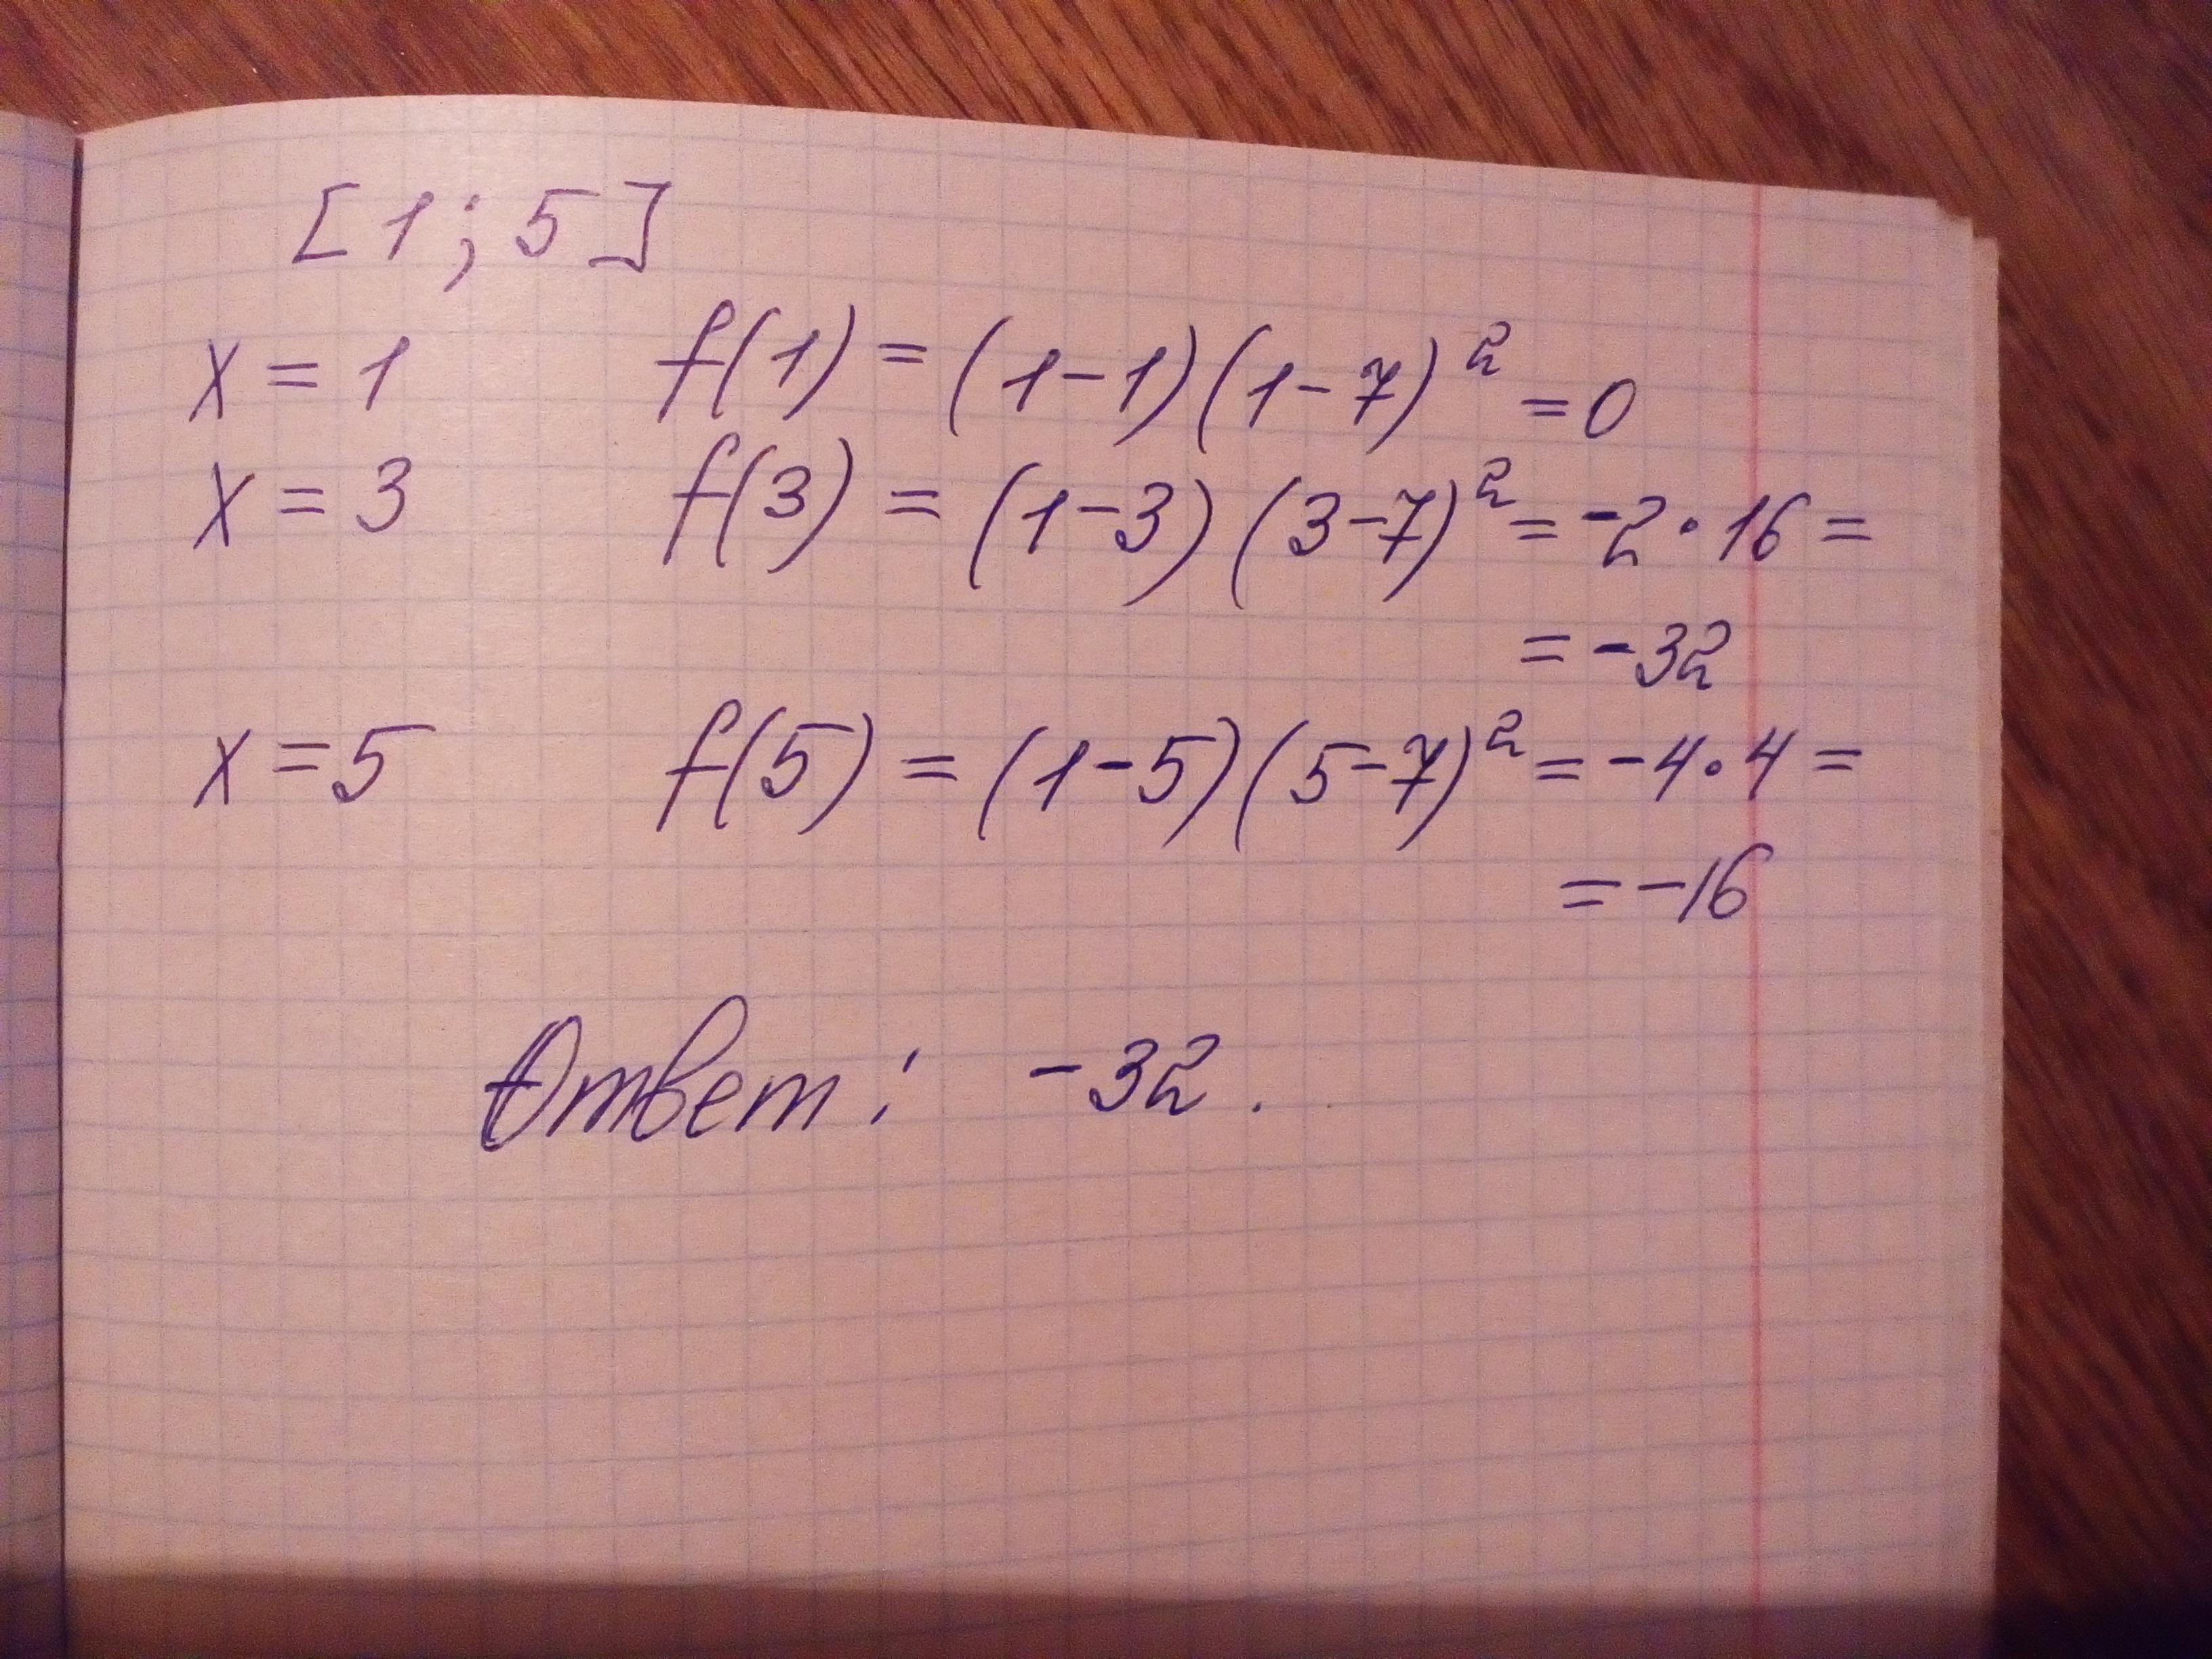 [1; 5]
x = 1 f(1) = (1-1)(1-7)² = 0
x = 3 f(3) = (1-3)(3-7)² = -2·16 =
= -32
x = 5 f(5) = (1-5)(5-7)² = -4·4 =
= -16
Ответ: -32.